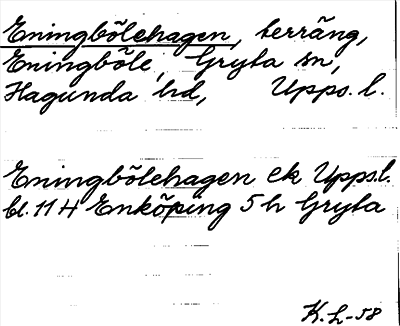 Eningbölehagen, terräng,
Eningböle, Gryta sn,
Hagunda hd, Upps. l.
Eningbölehagen ek Upps.l.
bl. 114 Enköping 5 h Gryta
K.L-58